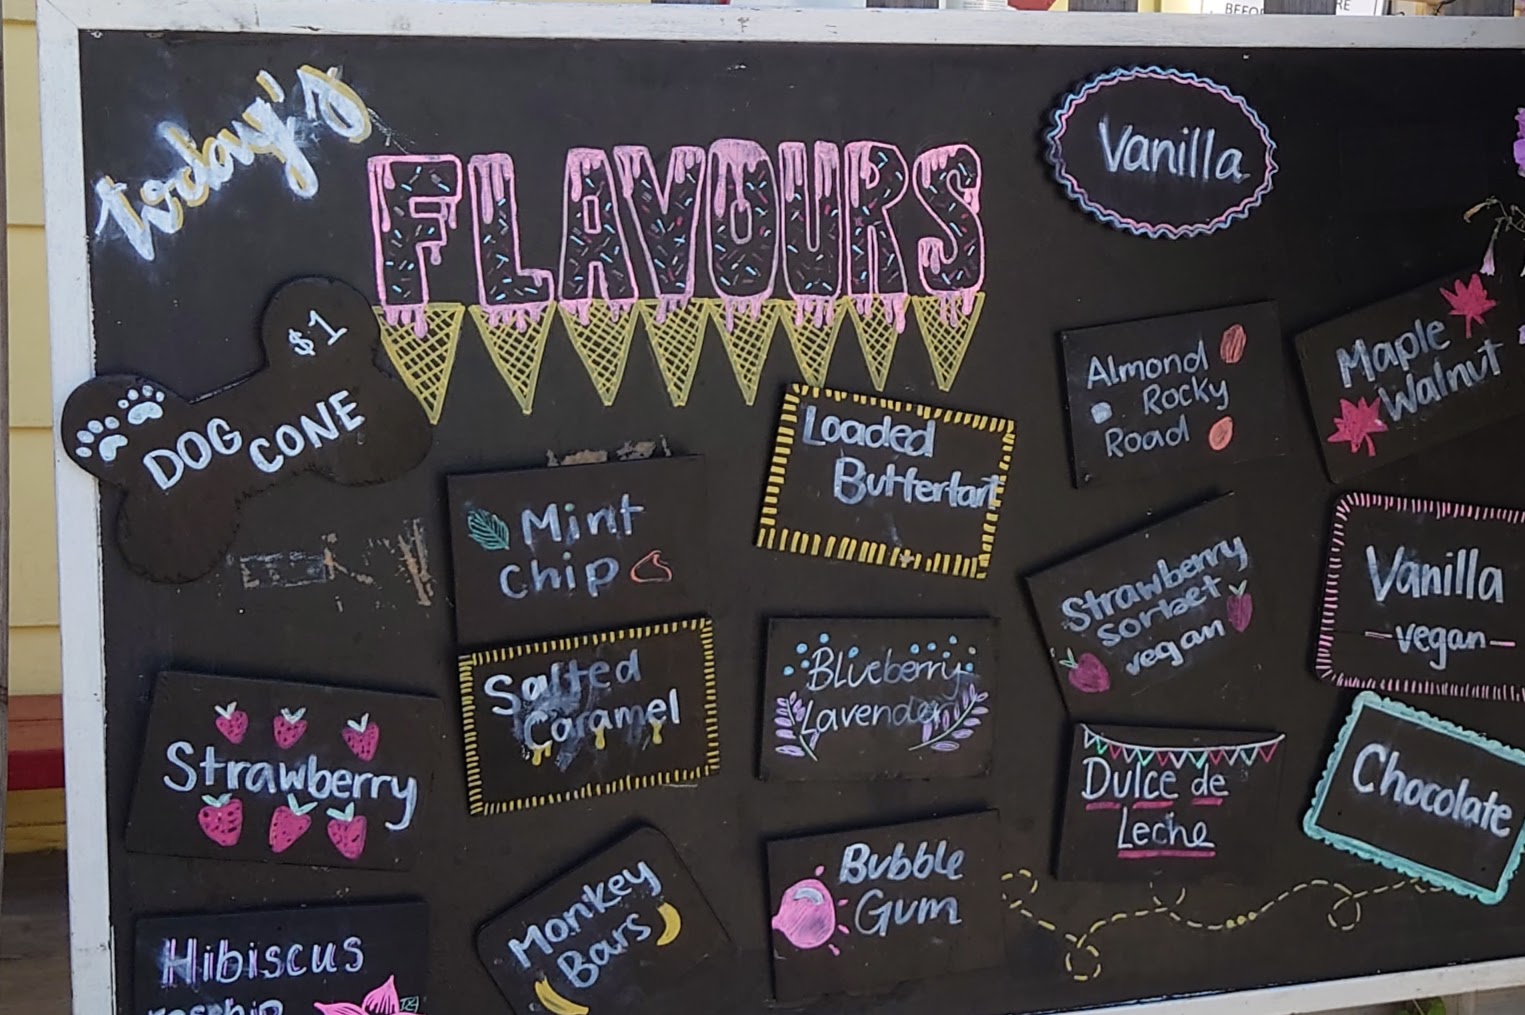 BEFO
RE
today's
FLAVOURS
Vanilla
$1
DOG CONE
Loaded
Buttertart
Almond
Rocky
Road
Maple
Walnut
Mint
Chip
Strawberry
sorbet
vegan
Vanilla
-vegan-
Salted
Caramel
Blueberry
Lavender
Strawberry
Dulce de
Leche
Chocolate
Monkey
Bars
Bubble
Gum
Hibiscus